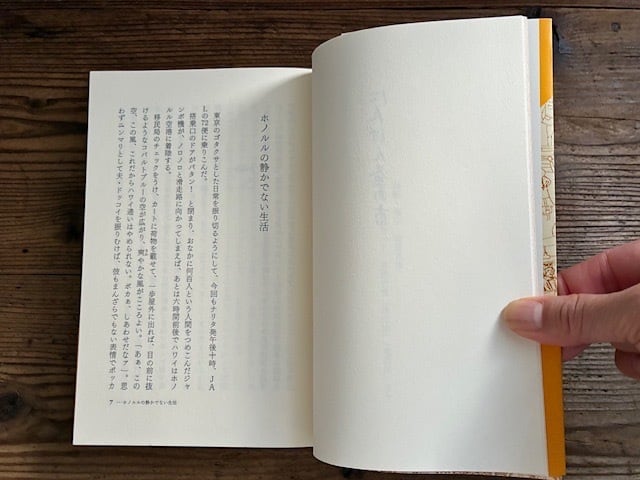 ホノルルの静かでない生活
東京のゴタクサとした日常を振り切るようにして、今回もナリタ発午後十時、JA
Lの72便に乗りこんだ。
搭乗口のドアがバタン！　と閉まり、おなかに何百人という人間をつめこんだジャ
ンボ機が、ノロノロと滑走路に向かってしまえば、あとは六時間前後でハワイはホノ
ルル空港に着陸する。
移民局のチェックをうけ、カートに荷物を載せて、一歩屋外に出れば、目の前に抜
けるようなコバルトブルーの空が広がり、爽やかな風がこころよい。「あぁ、この
空、この風、これだからハワイ通いはやめられない。ボカぁ、しあわせだなァ」。思
わずエンマリとして夫・ドッコイを振りむけば、彼もまんざらでもない表情でポッカ
7 ―ホノルルの静かでない生活